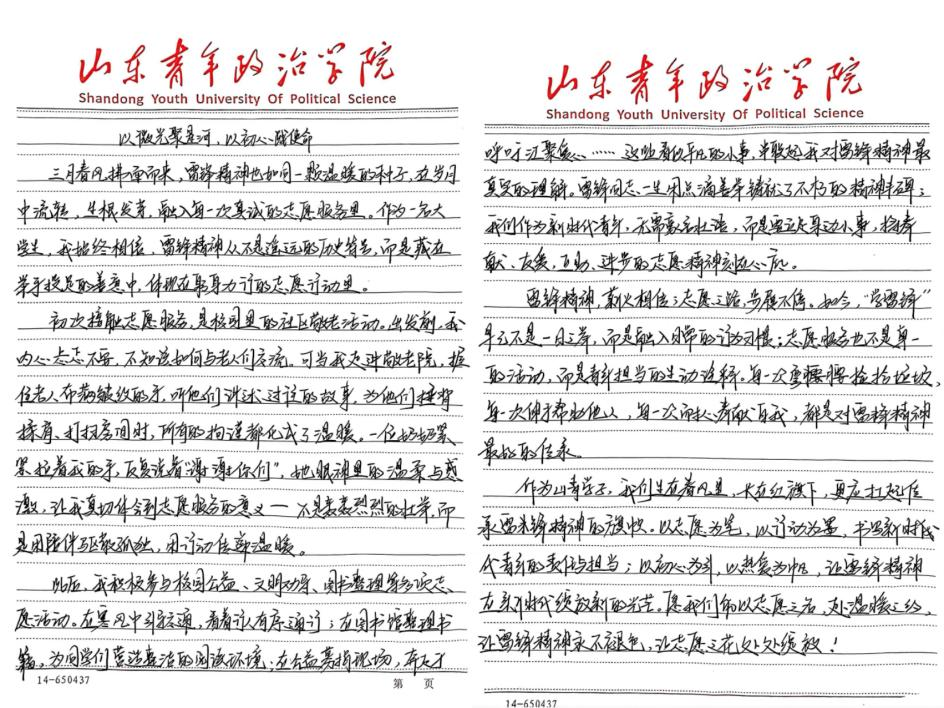 山东青年政治学院
Shandong Youth University Of Political Science
以微光聚星河，以初心践使命
三月春风拂面而来，雷锋精神也如同一颗温暖的种子，在岁月
中流转，生根发芽，融入每一次真诚的志愿服务里。作为一名大
学生，我始终相信，雷锋精神从不是遥远的历史符号，而是藏在
举手投足的善意中，体现在躬身力行的志愿行动里。
初次接触志愿服务，是校园里的社区敬老活动。出发前，我
内心忐忑不安，不知该如何与老人们交流。可当我走进敬老院，握
住老人布满皱纹的手，听他们讲述过往的故事，为他们捶背
揉肩、打扫房间时，所有的拘谨都化成了温暖。一位奶奶紧
紧拉着我的手，反复说着“谢谢你们”，她眼神里的温柔与感
激，让我真切体会到志愿服务的意义——不是轰轰烈烈的壮举，而
是用陪伴驱散孤独，用行动传递温暖。
此后，我积极参与校园公益、文明劝导、图书整理等各项志
愿活动。在寒风中引导交通，看着行人有序通行；在图书馆整理书
籍，为同学们营造整洁的阅读环境；在公益募捐现场，奔走
14-650437
第 页
山东青年政治学院
Shandong Youth University Of Political Science
呼吁汇聚爱心……这些看似平凡的小事，串联起我对雷锋精神最
真实的理解。雷锋同志一生用点滴善举铸就了不朽的精神丰碑；
我们作为新时代青年，无需豪言壮语，而是要立足身边小事，将奉
献、友爱、互助、进步的志愿精神刻在心底。
雷锋精神，薪火相传；志愿之路，步履不停。如今，“学雷锋”
早已不是一日之举，而是融入日常的行为习惯；志愿服务也不是单一
的活动，而是青春担当的生动诠释。每一次弯腰捡拾垃圾，
每一次伸手帮助他人，每一次奉献自我，都是对雷锋精神
最好的传承。
作为山青学子，我们生在春风里，长在红旗下，更应扛起传
承雷锋精神的旗帜。以志愿为笔，以行动为墨，书写新时代
代青年的责任与担当；以初心为引，以热爱为光，让雷锋精神
在新时代绽放新的光芒。愿我们都以志愿之名，赴温暖之约，
让雷锋精神永不褪色，让志愿之花处处绽放！
14-650437